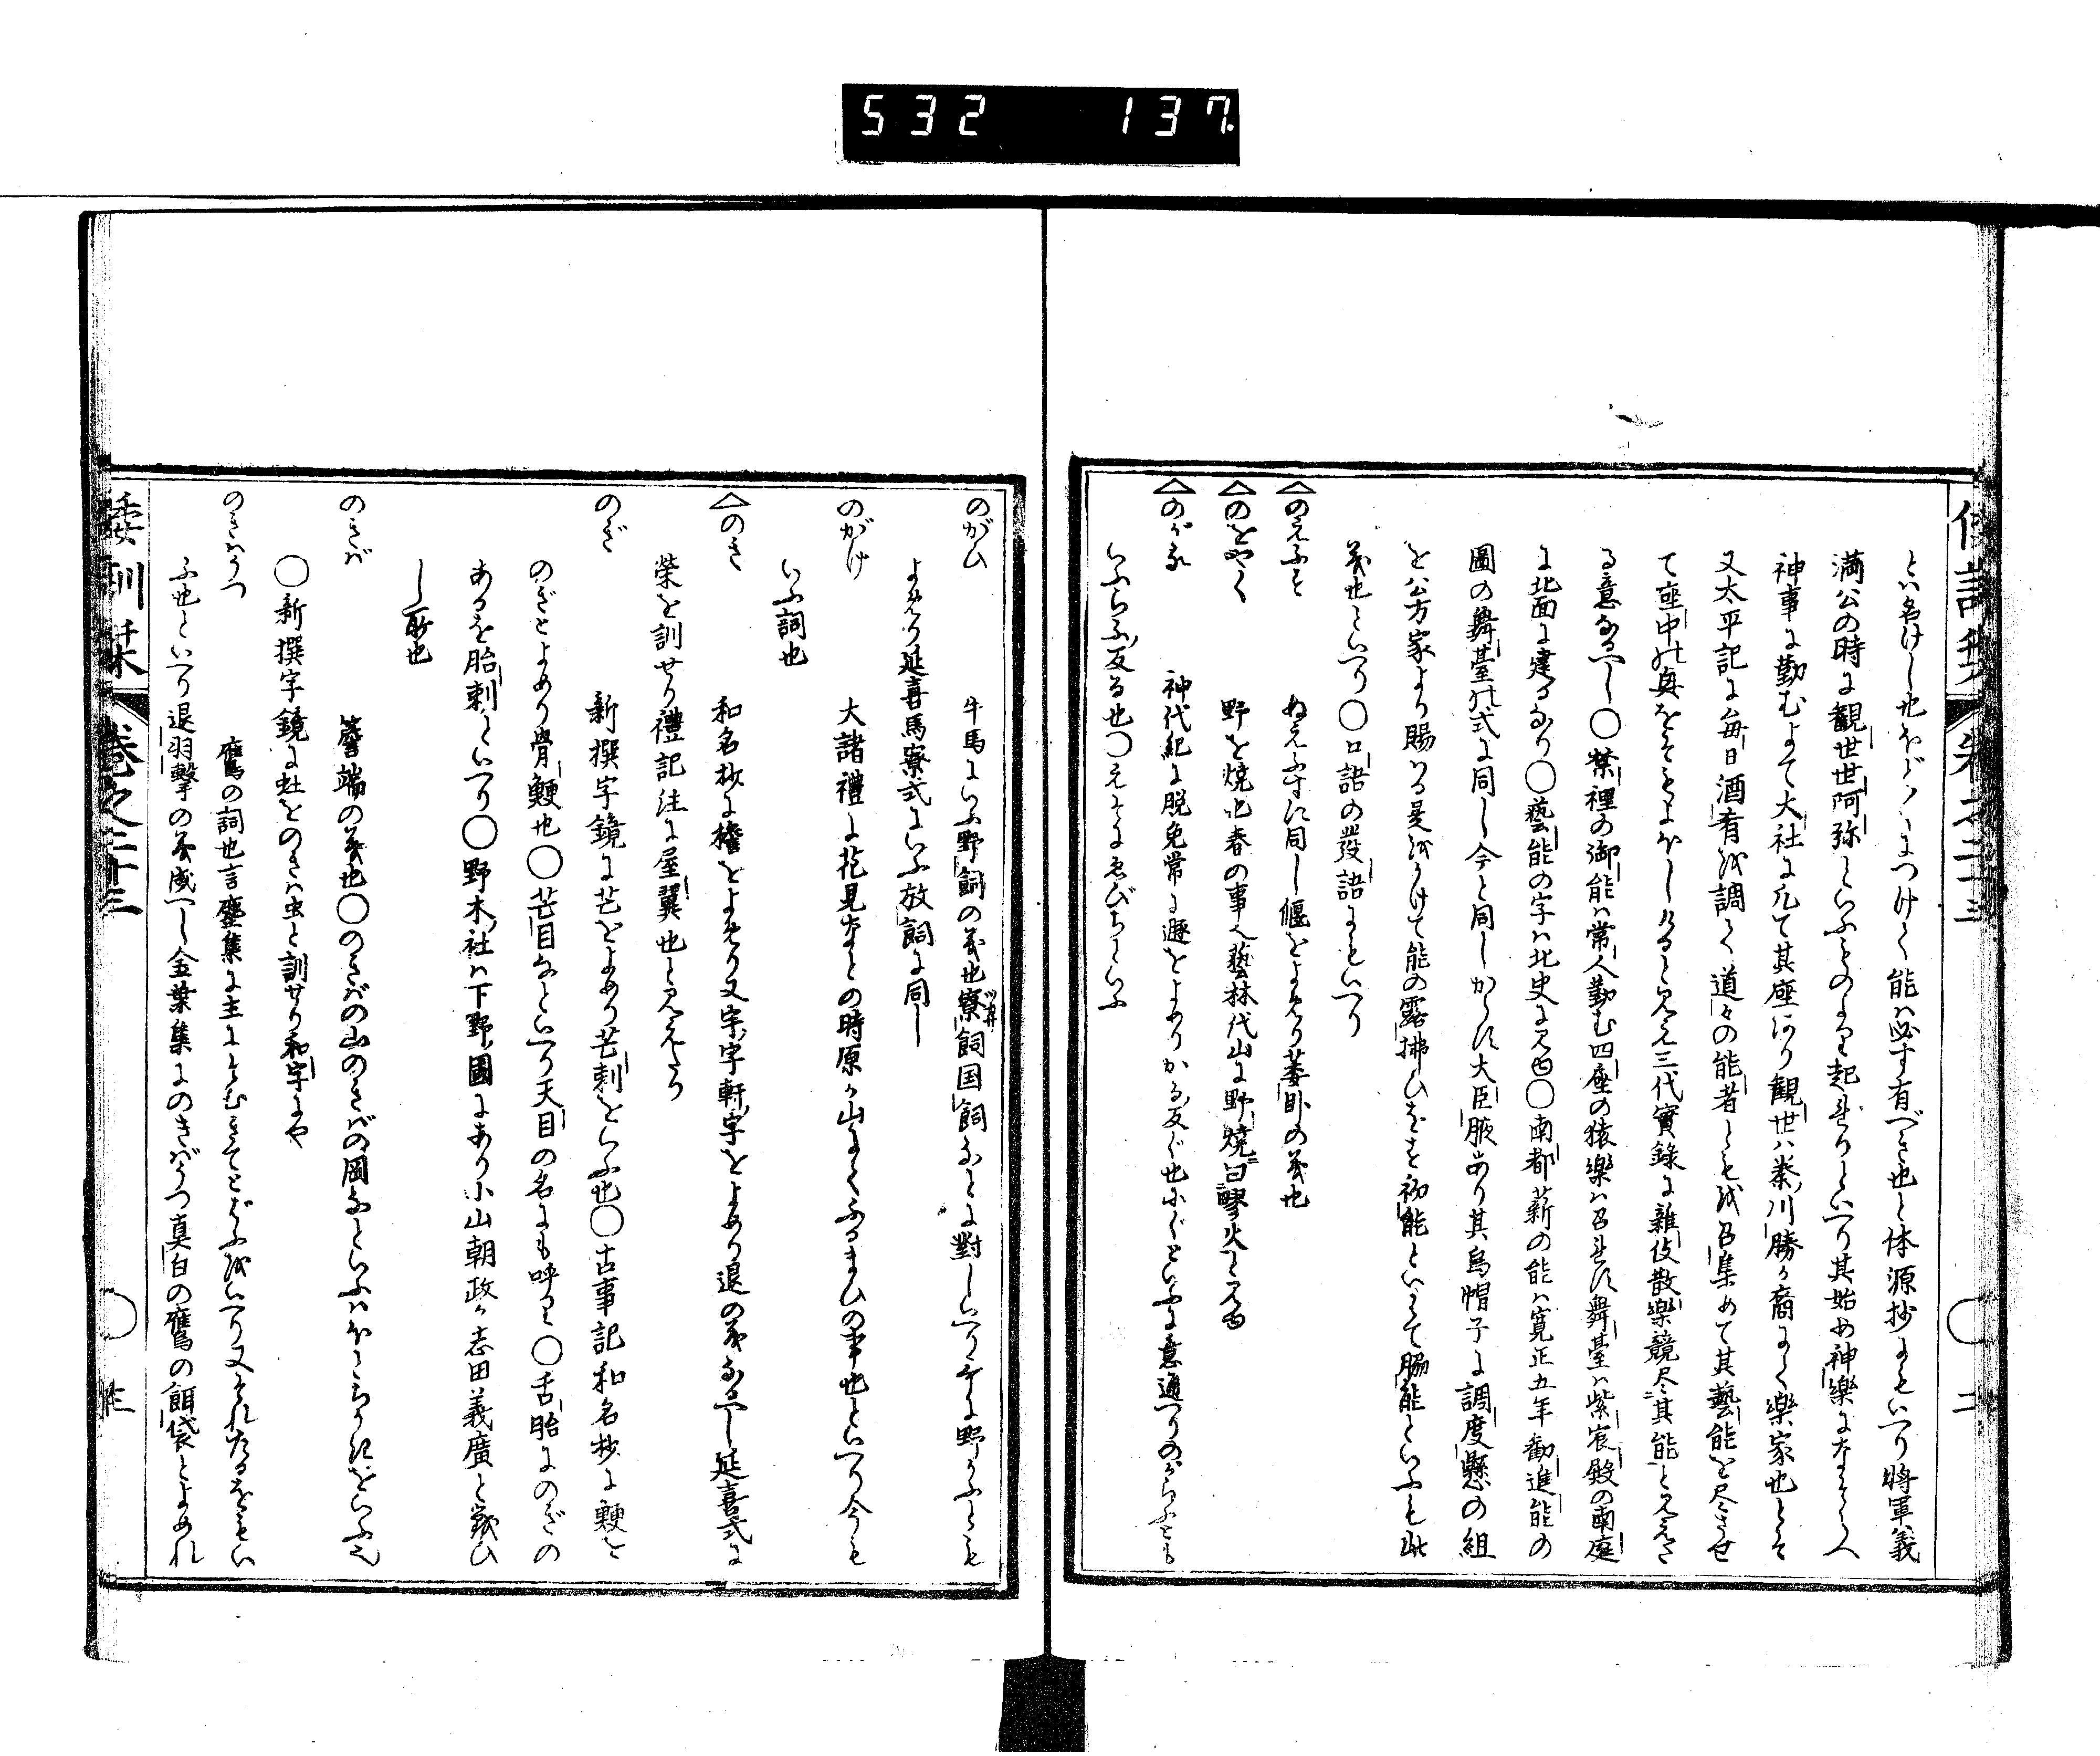 532 137
とハ名けし也ほどくにつけて能ハ必す有べき也と体源抄にもいへり将軍義
満公の時に観世世阿弥といふものより起れりといへり其始め神樂になそらへ
神事に勤むよて大社に凡て其座あり観世ハ秦川勝か裔にて樂家也とそ
又太平記に毎日酒肴を調て道々の能者ともを召集めて其藝能を尽させ
て座中の興をそもよほしけると見え三代實録に雜伎散樂競尽其能と見えた
る意なるへし〇禁裡の御能ハ常人勤む四座の猿樂ハ召れす舞臺ハ紫宸殿の南庭
に北面に建るなり〇藝能の字ハ北史に見ゆ〇南都薪の能ハ寛正五年勸進能の
圖の舞臺の式に同し今と同しからす大臣腋あり其烏帽子に調度懸の組
を公方家より賜ハる是をかけて能の露拂ひをするを初能といはて脇能といふも此
義也といへり〇口語の發語にもいへり
△のえふす ぬえふすに同し偃をよめり萎臥の義也
△のをやく 野を燒也春の事也藝林代山に野燒曰㙠火と見ゆ
△のがる 神代紀に脱免常に遯をよめりかる反ぐ也にぐといふに意通へりのがらふとも
いふらふ反る也〇えそにゑびちといふ
のがひ 牛馬にいふ野飼の義也寮飼国飼なとに對しいへり歌に野かふとも
よめり延喜馬寮式にいふ放飼に同し
のがけ 大諸禮に花見なとの時原か山にてくふるまひの事也といへり今も
いふ詞也
△のき 和名抄に檐をよめり又宇字軒字をよめり退の義なるへし延喜式に
榮を訓せり禮記注に屋翼也と見えたり
のぎ 新撰字鏡に芒をよめり芒刺をいふ也〇古事記和名抄に鯁を
のぎとよめり骨鯁也〇芒目なといへり天目の名にも呼り〇舌胎にのぎの
あるを胎刺といへり〇野木社ハ下野國にあり小山朝政か志田義廣と戰ひ
し所也
のきば 簷端の義也〇のきばの山のきばの岡なといふハほとちかきをいふ也
〇新撰字鏡に蚽をのきは虫と訓せり和字にや
のきハうつ 鷹の詞也言塵集に主にそむきてとぶをいへり又それたるをもい
ふ也といへり退羽撃の義成へし金葉集にのきばうつ真白の鷹の餌袋とよめれ
倭訓栞 巻之二十三 〇 二